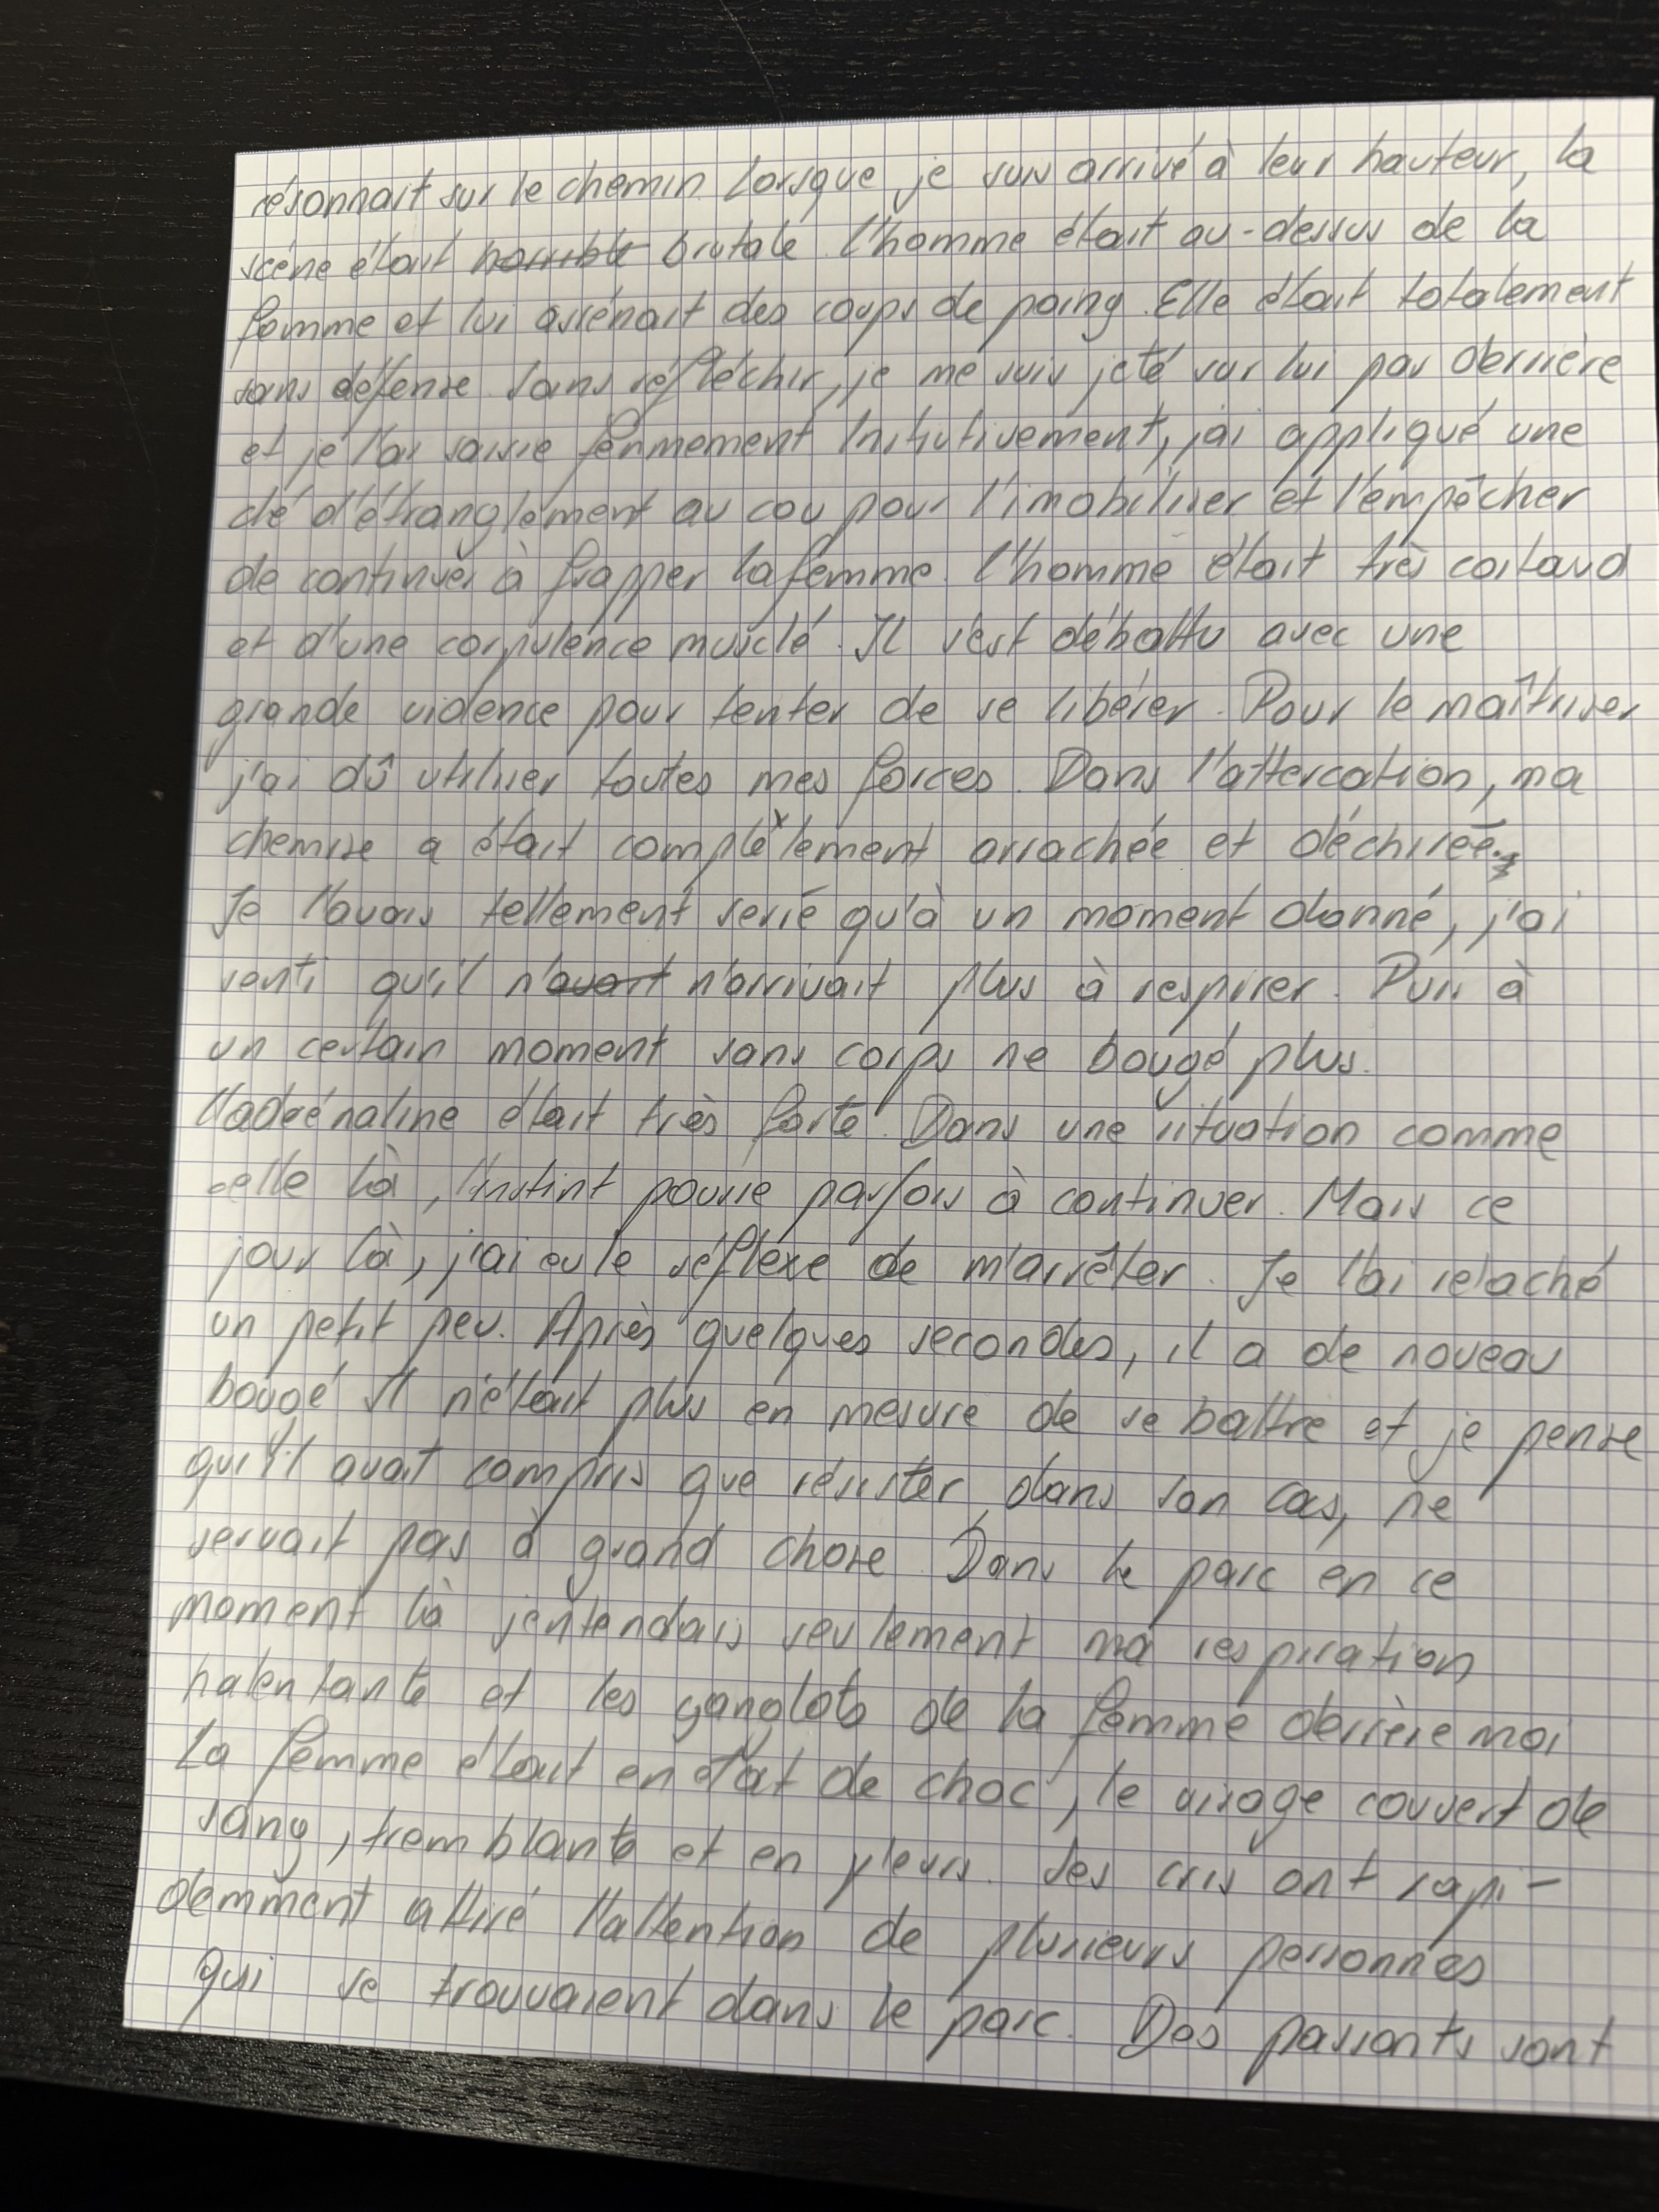 résonnait sur le chemin. Lorsque je suis arrivé à leur hauteur, la
scène était horrible brutale. l'homme était au-dessus de la
femme et lui assénait des coups de poing. Elle était totalement
sans défense. Sans réfléchir, je me suis jeté sur lui par derrière
et je l'ai saisie fermement. Initutivement, j'ai appliqué une
clé d'étranglement au cou pour l'imobiliser et l'empêcher
de continuer à frapper la femme. l'homme était très costaud
et d'une corpulence musclé. Il s'est débattu avec une
grande violence pour tenter de se libérer. Pour le maîtriser
j'ai dû utiliser toutes mes forces. Dans l'altercation, ma
chemise a était complètement arrachée et déchirée.
Je l'avais tellement serré qu'à un moment donné, j'ai
senti qu'il n'avait n'arrivait plus à respirer. Puis à
un certain moment sans corps ne bougé plus.
l'adrénaline était très forte. Dans une situation comme
celle là, l'instint pousse parfois à continuer. Mais ce
jour là, j'ai eu le réflexe de m'arrêter. Je l'ai relaché
un petit peu. Après quelques secondes, il a de nouveau
bougé. Il n'était plus en mesure de se battre et je pense
qu'il avait compris que résister, dans son cas, ne
servait pas à grand chose. Dans le parc en ce
moment là j'entendais seulement ma respiration
halentante et les ganglots de la femme derrière moi
La femme était en état de choc, le visage couvert de
sang, tremblante et en pleurs. Ses cris ont rapi-
demment attiré l'attention de plusieurs personnes
qui se trouvaient dans le parc. Des passants sont